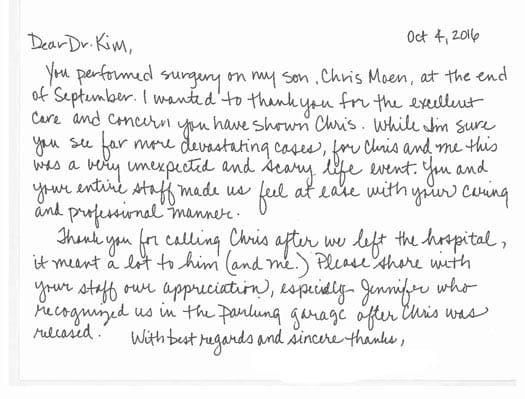 Oct 4, 2016
Dear Dr. Kim,
You performed surgery on my son, Chris Moen, at the end
of September. I wanted to thank you for the excellent
care and concern you have shown Chris. While I'm sure
you see far more devastating cases, for Chris and me this
was a very unexpected and scary life event. You and
your entire staff made us feel at ease with your caring
and professional manner.
Thank you for calling Chris after we left the hospital,
it meant a lot to him (and me.) Please share with
your staff our appreciation, especially Jennifer who
recognized us in the parking garage after Chris was
released. With best regards and sincere thanks,